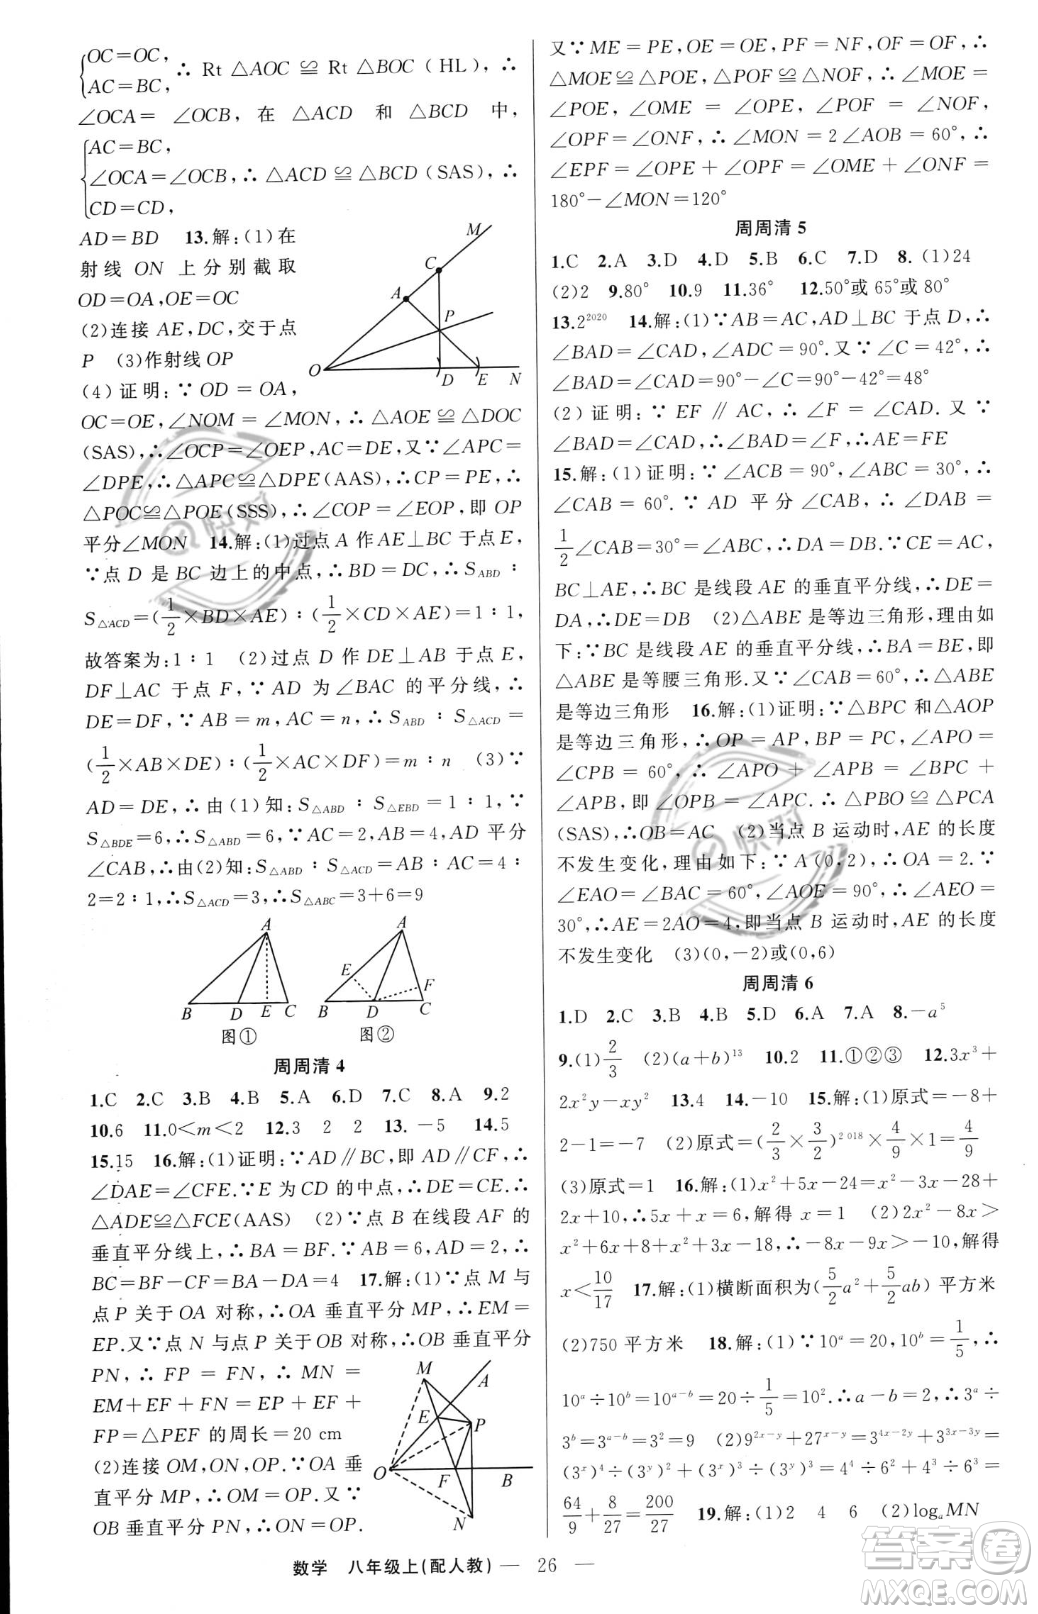 {OC=OC,
AC=BC, ∴ Rt △AOC ≌ Rt △BOC (HL), ∴
∠OCA = ∠OCB, 在 △ACD 和 △BCD 中,
{AC=BC,
∠OCA=∠OCB, ∴△ACD ≌ △BCD(SAS), ∴
CD=CD,
AD=BD 13.解:(1)在
射线 ON 上分别截取
OD=OA,OE=OC
(2)连接 AE,DC,交于点
P (3)作射线 OP
(4) 证明: ∵ OD = OA,
OC=OE,∠NOM = ∠MON, ∴ △AOE ≌ △DOC
(SAS), ∴∠OCP=∠OEP,AC=DE,又∵∠APC=
∠DPE, ∴△APC≌△DPE(AAS), ∴PC=PE, ∴
△POC≌△POE(SSS), ∴∠COP=∠EOP,即 OP
平分∠MON 14.解:(1)过点 A 作 AE⊥BC 于点 E,
∵点 D 是 BC 边上的中点, ∴BD=DC, ∴S_{ABD} :
S_{△ACD}=(1/2×BD×AE) : (1/2×CD×AE)=1 : 1,
故答案为:1 : 1 (2)过点 D 作 DE⊥AB 于点 E,
DF⊥AC 于点 F, ∵ AD 为 ∠BAC 的平分线, ∴
DE=DF, ∵ AB = m, AC = n, ∴ S_{ABD} : S_{△ACD} =
(1/2×AB×DE) : (1/2×AC×DF)=m : n (3)∵
AD = DE, ∴ 由(1)知:S_{△ABD} : S_{△EBD} = 1 : 1, ∵
S_{△BDE}=6, ∴S_{△ABD}=6, ∵AC=2,AB=4,AD 平分
∠CAB, ∴ 由(2)知:S_{△ABD} : S_{△ACD} = AB : AC = 4 :
2=2 : 1, ∴S_{△ACD}=3, ∴S_{△ABC}=3+6=9
M
C
A
P
O
D
E
N
A
B
D
E
C
图①
A
E
F
B
D
C
图②
周周清 4
1.C 2.C 3.B 4.B 5.A 6.D 7.C 8.A 9.2
10.6 11.0<m<2 12.3 2 2 13.-5 14.5
15.15 16.解:(1)证明:∵AD∥BC,即 AD∥CF, ∴
∠DAE=∠CFE. ∵E 为 CD 的中点, ∴DE=CE, ∴
△ADE≌△FCE(AAS) (2)∵点 B 在线段 AF 的
垂直平分线上, ∴ BA = BF. ∵ △ADE ≌ △FCE, ∴
BC=BF-CF=BA-DA=4 17.解:(1)∵点 M 与
点 P 关于 OA 对称, ∴OA 垂直平分 MP, ∴EM=
EP.又∵点 N 与点 P 关于 OB 对称, ∴OB 垂直平分
PN, ∴ FP = FN, ∴ MN =
EM + EF + FN = EP + EF +
FP=△PEF 的周长=20 cm
(2)连接 OM,ON,OP, ∵OA 垂
直平分 MP, ∴OM=OP.又∵
OB 垂直平分 PN, ∴ON=OP.
M
A
E
P
O
F
B
N
又∵ ME = PE, OE = OE, PF = NF, OF = OF, ∴
△MOE≌△POE, △POF≌△NOF, ∴∠MOE=
∠POE, ∠OME = ∠OPE, ∠POF = ∠NOF,
∠OPF=∠ONF, ∴∠MON=2∠AOB=60°, ∴
∠EPF = ∠OPE + ∠OPF = ∠OME + ∠ONF =
180°-∠MON=120°
周周清 5
1.C 2.A 3.D 4.D 5.B 6.C 7.D 8.(1)24
(2)2 9.80° 10.9 11.36° 12.50°或65°或80°
13.2^{2020} 14.解:(1)∵AB=AC,AD⊥BC 于点 D, ∴
∠BAD=∠CAD,∠ADC=90°.又∵∠C=42°, ∴
∠BAD=∠CAD=90°-42°=48°
(2) 证明: ∵ EF ∥ AC, ∴ ∠F = ∠CAD. 又 ∵
∠BAD=∠CAD, ∴∠BAD=∠F, ∴AE=FE
15.解:(1)证明:∵∠ACB=90°,∠ABC=30°, ∴
∠CAB = 60°. ∵ AD 平分 ∠CAB, ∴ ∠DAB =
1/2∠CAB=30°=∠ABC, ∴DA=DB. ∵CE=AC,
BC⊥AE, ∴BC 是线段 AE 的垂直平分线, ∴DE=
DA, ∴DE=DB (2)△ABE 是等边三角形,理由如
下:∵BC 是线段 AE 的垂直平分线, ∴BA=BE,即
△ABE 是等腰三角形.又∵∠CAB=60°, ∴△ABE
是等边三角形 16.解:(1)证明:∵△BPC 和△AOP
是等边三角形, ∴OP=AP,BP=PC,∠APO=
∠CPB = 60°, ∴ ∠APO + ∠APB = ∠CPB +
∠APB,即 ∠OPB = ∠APC. ∴ △PBO ≌ △PCA
(SAS), ∴OB=AC (2)当点 B 运动时,AE 的长度
不发生变化,理由如下:∵A(0,2), ∴OA=2. ∵
∠EAO=∠BAC=60°,∠AOE=90°, ∴∠AEO=
30°, ∴AE=2AO=4,即当点 B 运动时,AE 的长度
不发生变化 (3)(0,-2)或(0,6)
周周清 6
1.D 2.C 3.B 4.B 5.D 6.A 7.A 8.-a^5
9.(1)2/3 (2)(a+b)^{13} 10.2 11.①②③ 12.3x^3+
2x^2y-xy^2 13.4 14.-10 15.解:(1)原式=-8+
2-1=-7 (2)原式=(2/3×3/2)^{2018}×4/9×1=4/9
(3)原式=1 16.解:(1)x^2+5x-24=x^2-3x-28+
2x+10, ∴5x+x=6,解得 x=1 (2)2x^2-8x>
x^2+6x+8+x^2+3x-18, ∴-8x-9x>-10,解得
x<10/17 17.解:(1)横断面积为(5/2a^2+5/2ab)平方米
(2)750 平方米 18.解:(1)∵10^a=20,10^b=1/5, ∴
10^a÷10^b=10^{a-b}=20÷1/5=10^2, ∴a-b=2, ∴3^a÷
3^b=3^{a-b}=3^2=9 (2)9^{2x-y}+27^{x-y}=3^{4x-2y}+3^{3x-3y}=
(3^x)^4÷(3^y)^2+(3^x)^3÷(3^y)^3=4^4÷6^2+4^3÷6^3=
64/9+8/27=200/27 19.解:(1)2 4 6 (2)log_aMN
数学 八年级上(配人教) — 26 —
快对
快对
答案圈
MXQE.COM